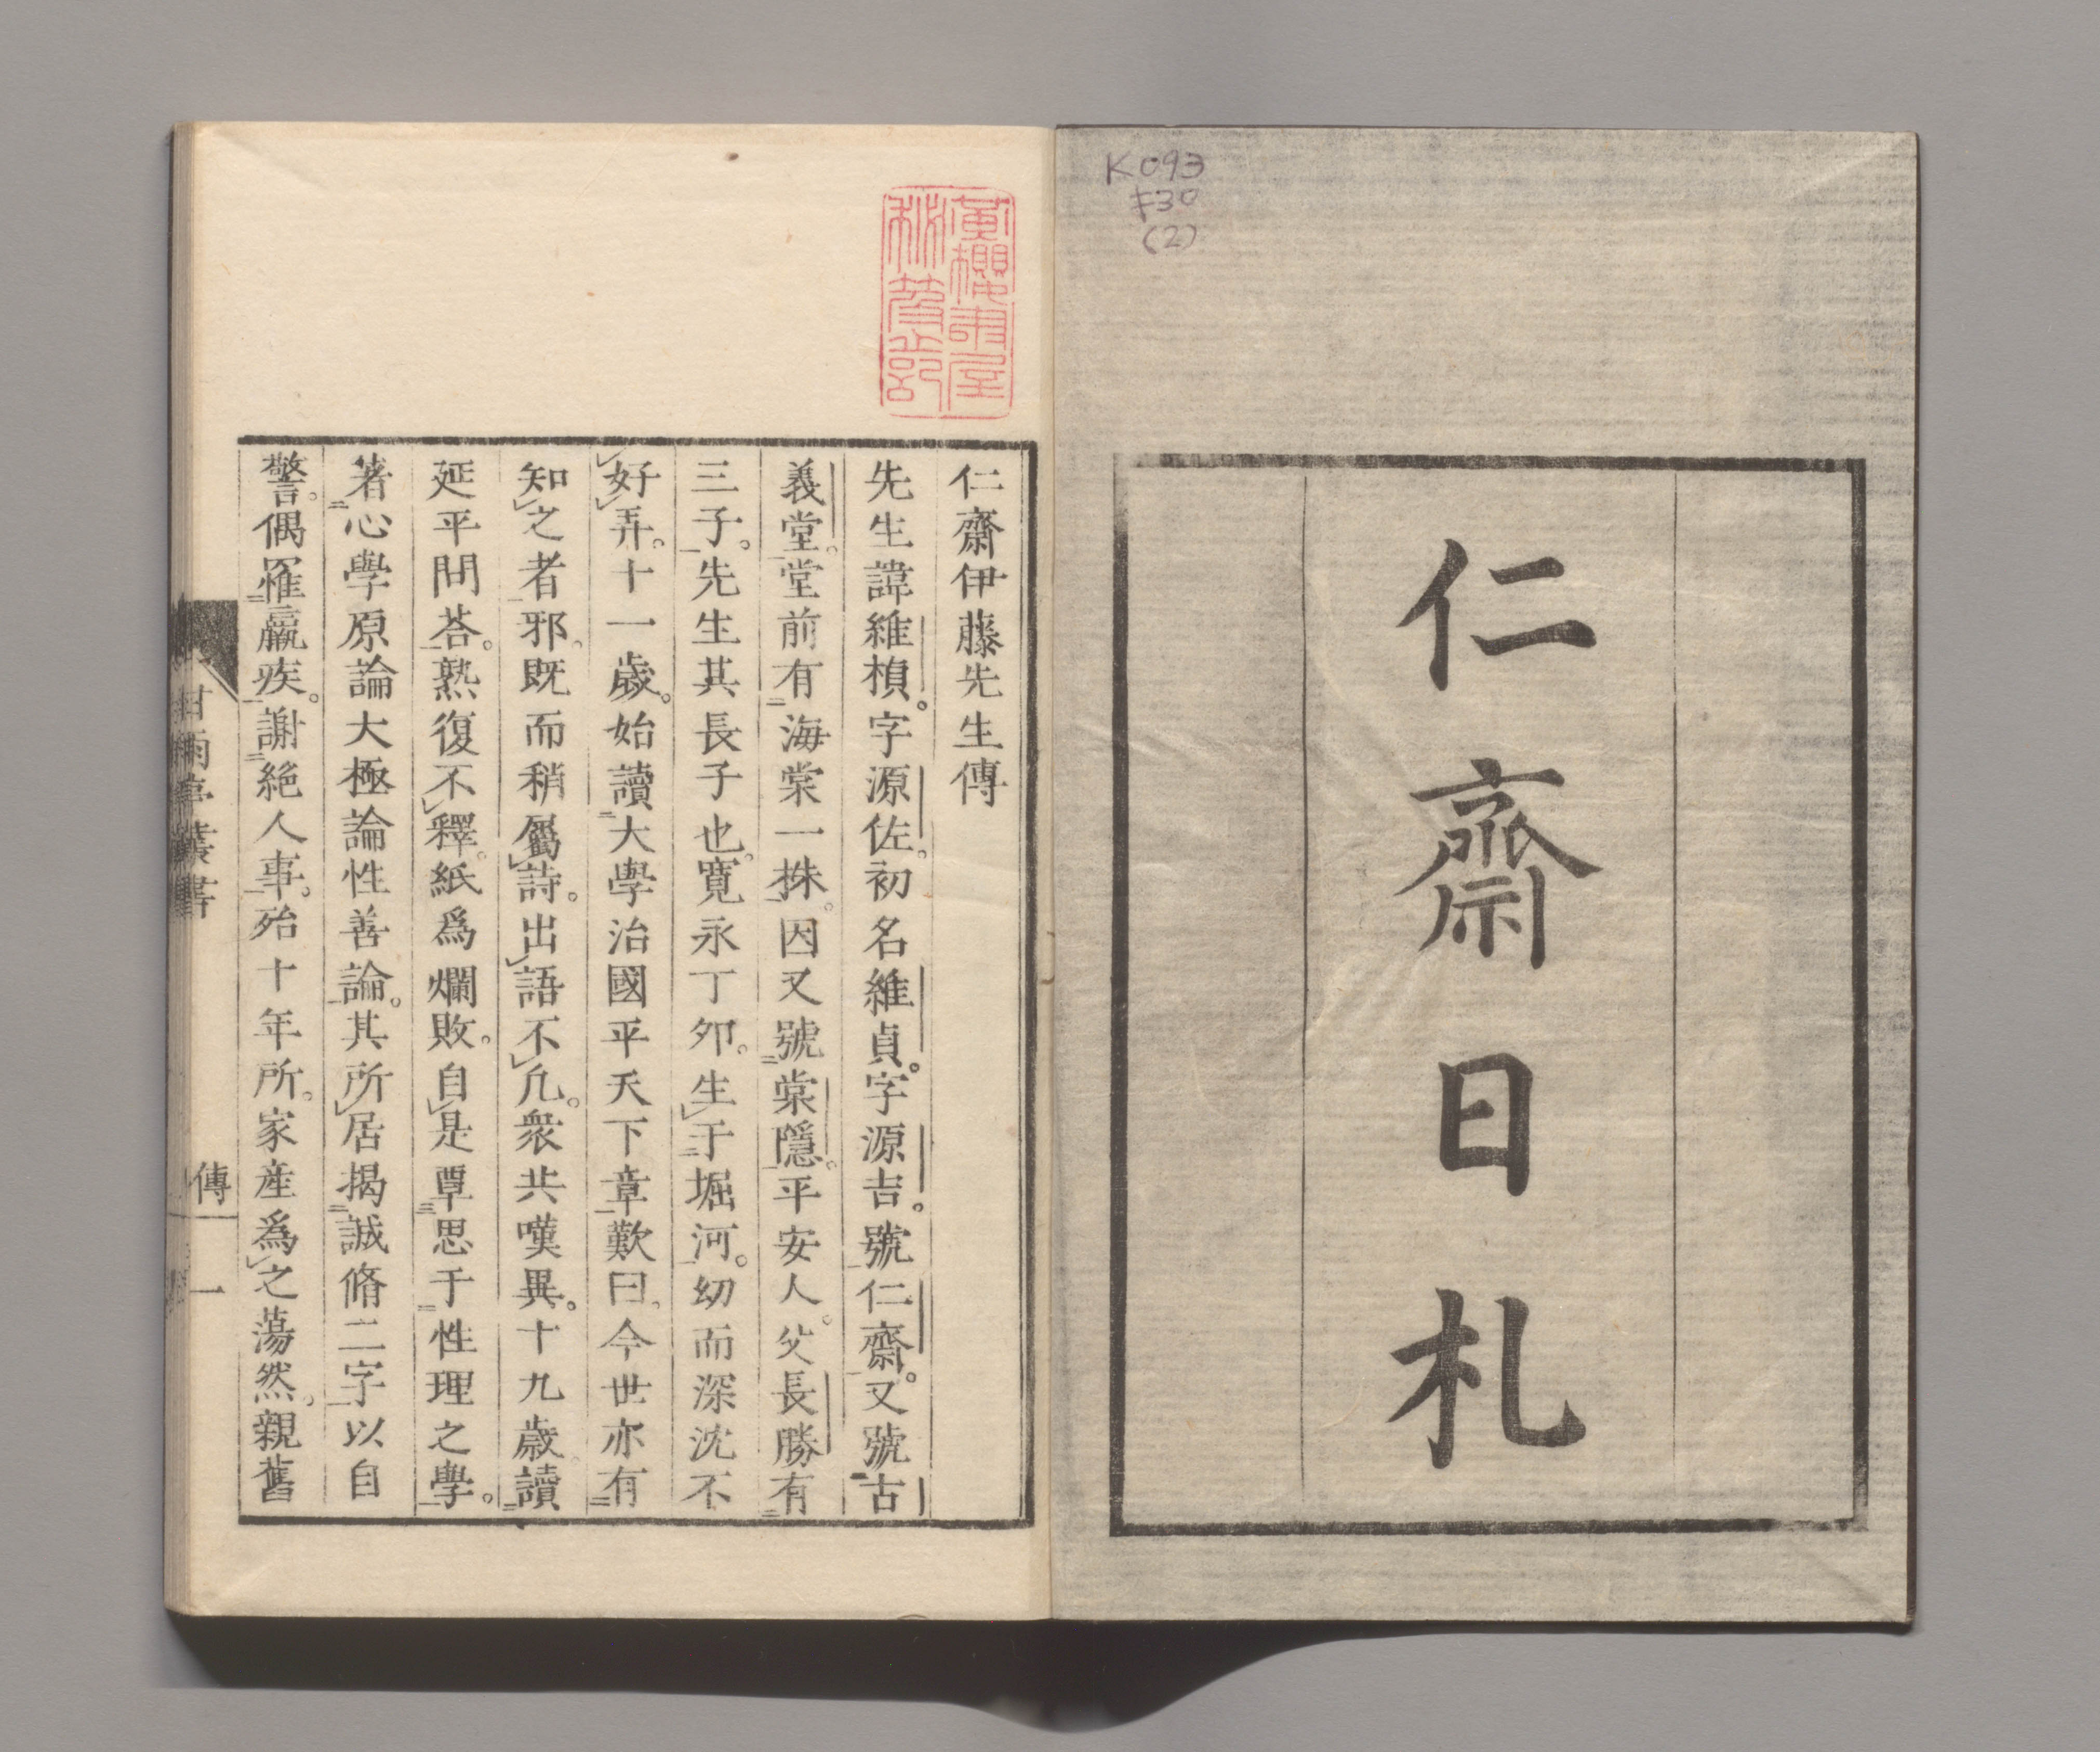 K093
F30
(2)
仁齋日札
黃櫻書屋
仁齋伊藤先生傳
先生諱維楨。字源佐。初名維貞。字源吉。號仁齋。又號古
義堂。堂前有海棠一株。因又號棠隱。平安人。父長勝有
三子。先生其長子也。寬永丁夘。生于堀河。幼而深沈不
好弄。十一歲。始讀大學治國平天下章歎曰。今世亦有
知之者邪。既而稍屬詩。出語不凡。衆共嘆異。十九歲。讀
延平問荅。熟復不釋。紙爲爛敗。自是覃思于性理之學。
著心學原論大極論性善論。其所居揭誠脩二字以自
警。偶罹羸疾。謝絕人事。殆十年所。家產爲之蕩然。親舊
甘雨亭叢書
傳
一